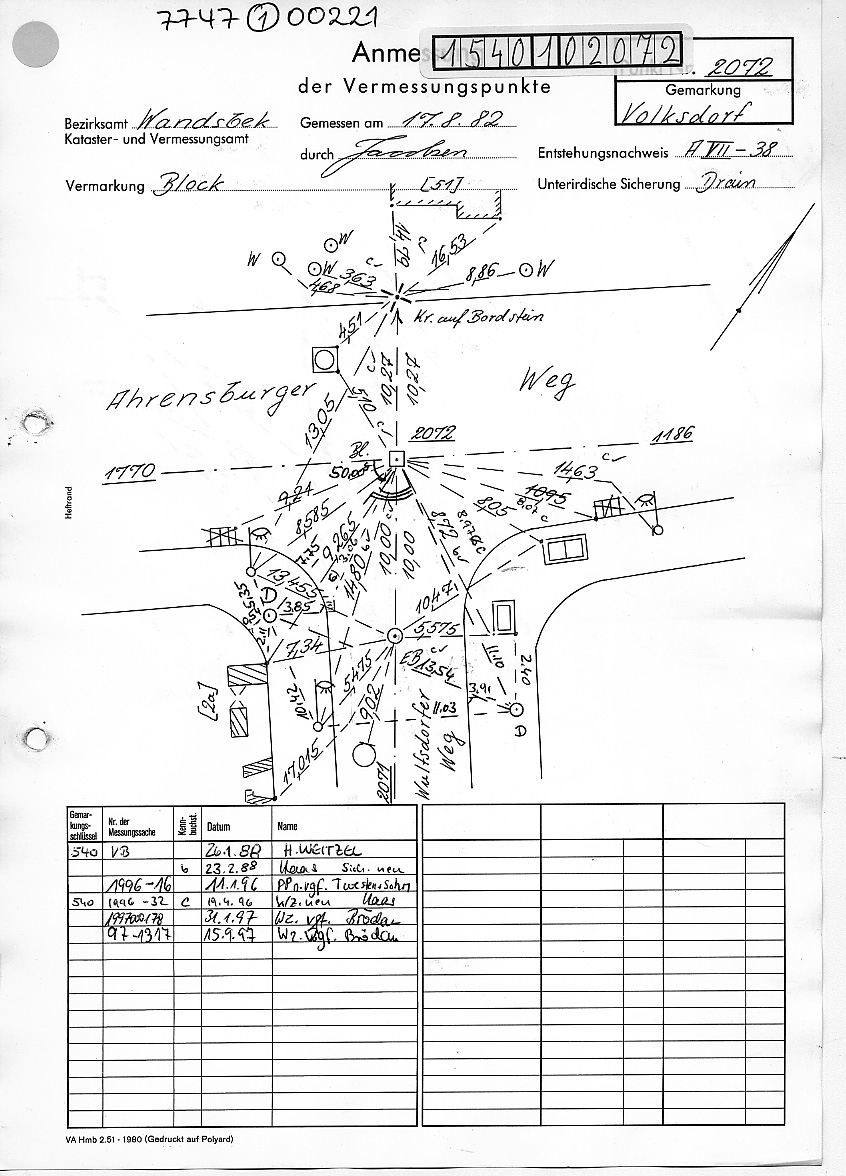 7747 ① 00221
Anme
1540102072
2072
der Vermessungspunkte
Gemarkung
Volksdorf
Bezirksamt Wandsbek
Kataster- und Vermessungsamt
Gemessen am 17.8.82
durch Jacobsen
Entstehungsnachweis A VII - 38
Vermarkung Block
[51]
Unterirdische Sicherung Drain
14,79
16,53
W
W
W
3,63
4,68
8,86
W
Kr. auf Bordstein
4,51
Ahrensburger
Weg
13,05
5,10
10,27
10,27
2072
1186
Bl.
1770
50,005
14,63
10,95
8,05
9,21
8,585
9,265
10,00
10,00
8,72
14,80
13,455
3,85
10,47
7,34
5,575
EB
13,54
5,475
9,02
10,42
11,10
2,40
3,91
11.03
[2a]
17,015
2071
Wulfsdorfer
Weg
A
Heftrand
Gemar-
kungs-
schlüssel
Nr. der
Messungssache
Kenn-
buchst.
Datum
Name
540 VB 26.1.88 H. WEITZEL
b 23.2.88 Haas Sich. neu
1996-16 11.1.96
540 1996-32 c 19.4.96 Wz. neu Haas
199700178 31.1.97 Wz. vgf. Brödau
97-1317 15.9.97 Wz. vgf. Brödau
VA Hmb 2.51 - 1980 (Gedruckt auf Polyard)